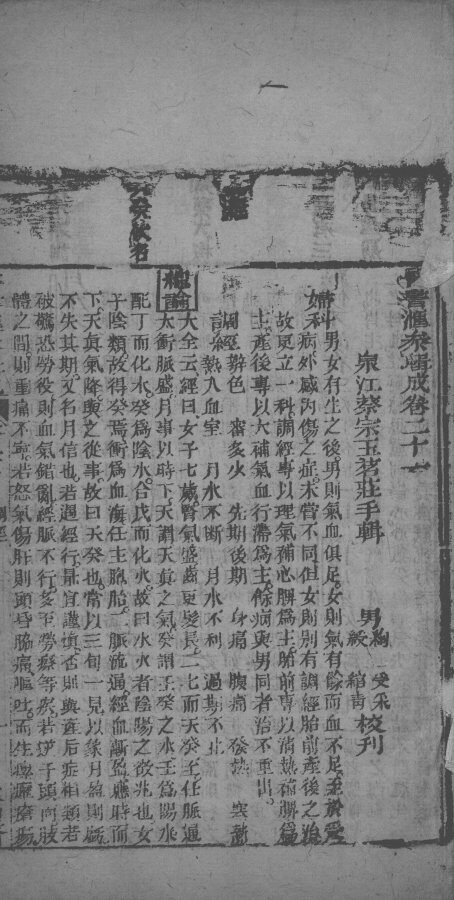 醫滙叅輯成卷二十一
泉江蔡宗玉茗莊手輯
男 絢 受采
綬 綰青 校刊
婦科
男女有生之後男則氣血俱足女則氣有餘而血不足至於受
病外感內傷之症未嘗不同但女則別有調經胎前產後之治
故更立一科調經專以理氣補心脾爲主胎前專以清熱補脾爲
主產後專以大補氣血行滯爲主餘病與男同者治不重出
調經辨色 審炙火 先期後期 身痛 腹痛 發熱 寒熱
熱入血室 月水不斷 月水不利 過期不止
總論
大全云經曰女子七歲腎氣盛齒更髮長二七而天癸至任脈通
太衝脈盛月事以時下天謂天眞之氣癸謂壬癸之水壬爲陽水
配丁而化木癸爲陰水合戊而化火故曰水火者陰陽之徵兆也女
子陰類故得癸焉衝爲血海任主胞胎二脈流通經血漸盈應時而
下天眞氣降與之從事故曰天癸也常以三旬一見以象月盈則虧
不失其期又名月信也若遇經行最宜謹愼否則與產后症相類若
被驚恐勞役則血氣錯亂經脈不行多至勞瘵等疾若逆于頭面肢
體之間則重痛不寧若怒氣傷肝則頭昏脇痛嘔吐而生瘰癧瘡瘍